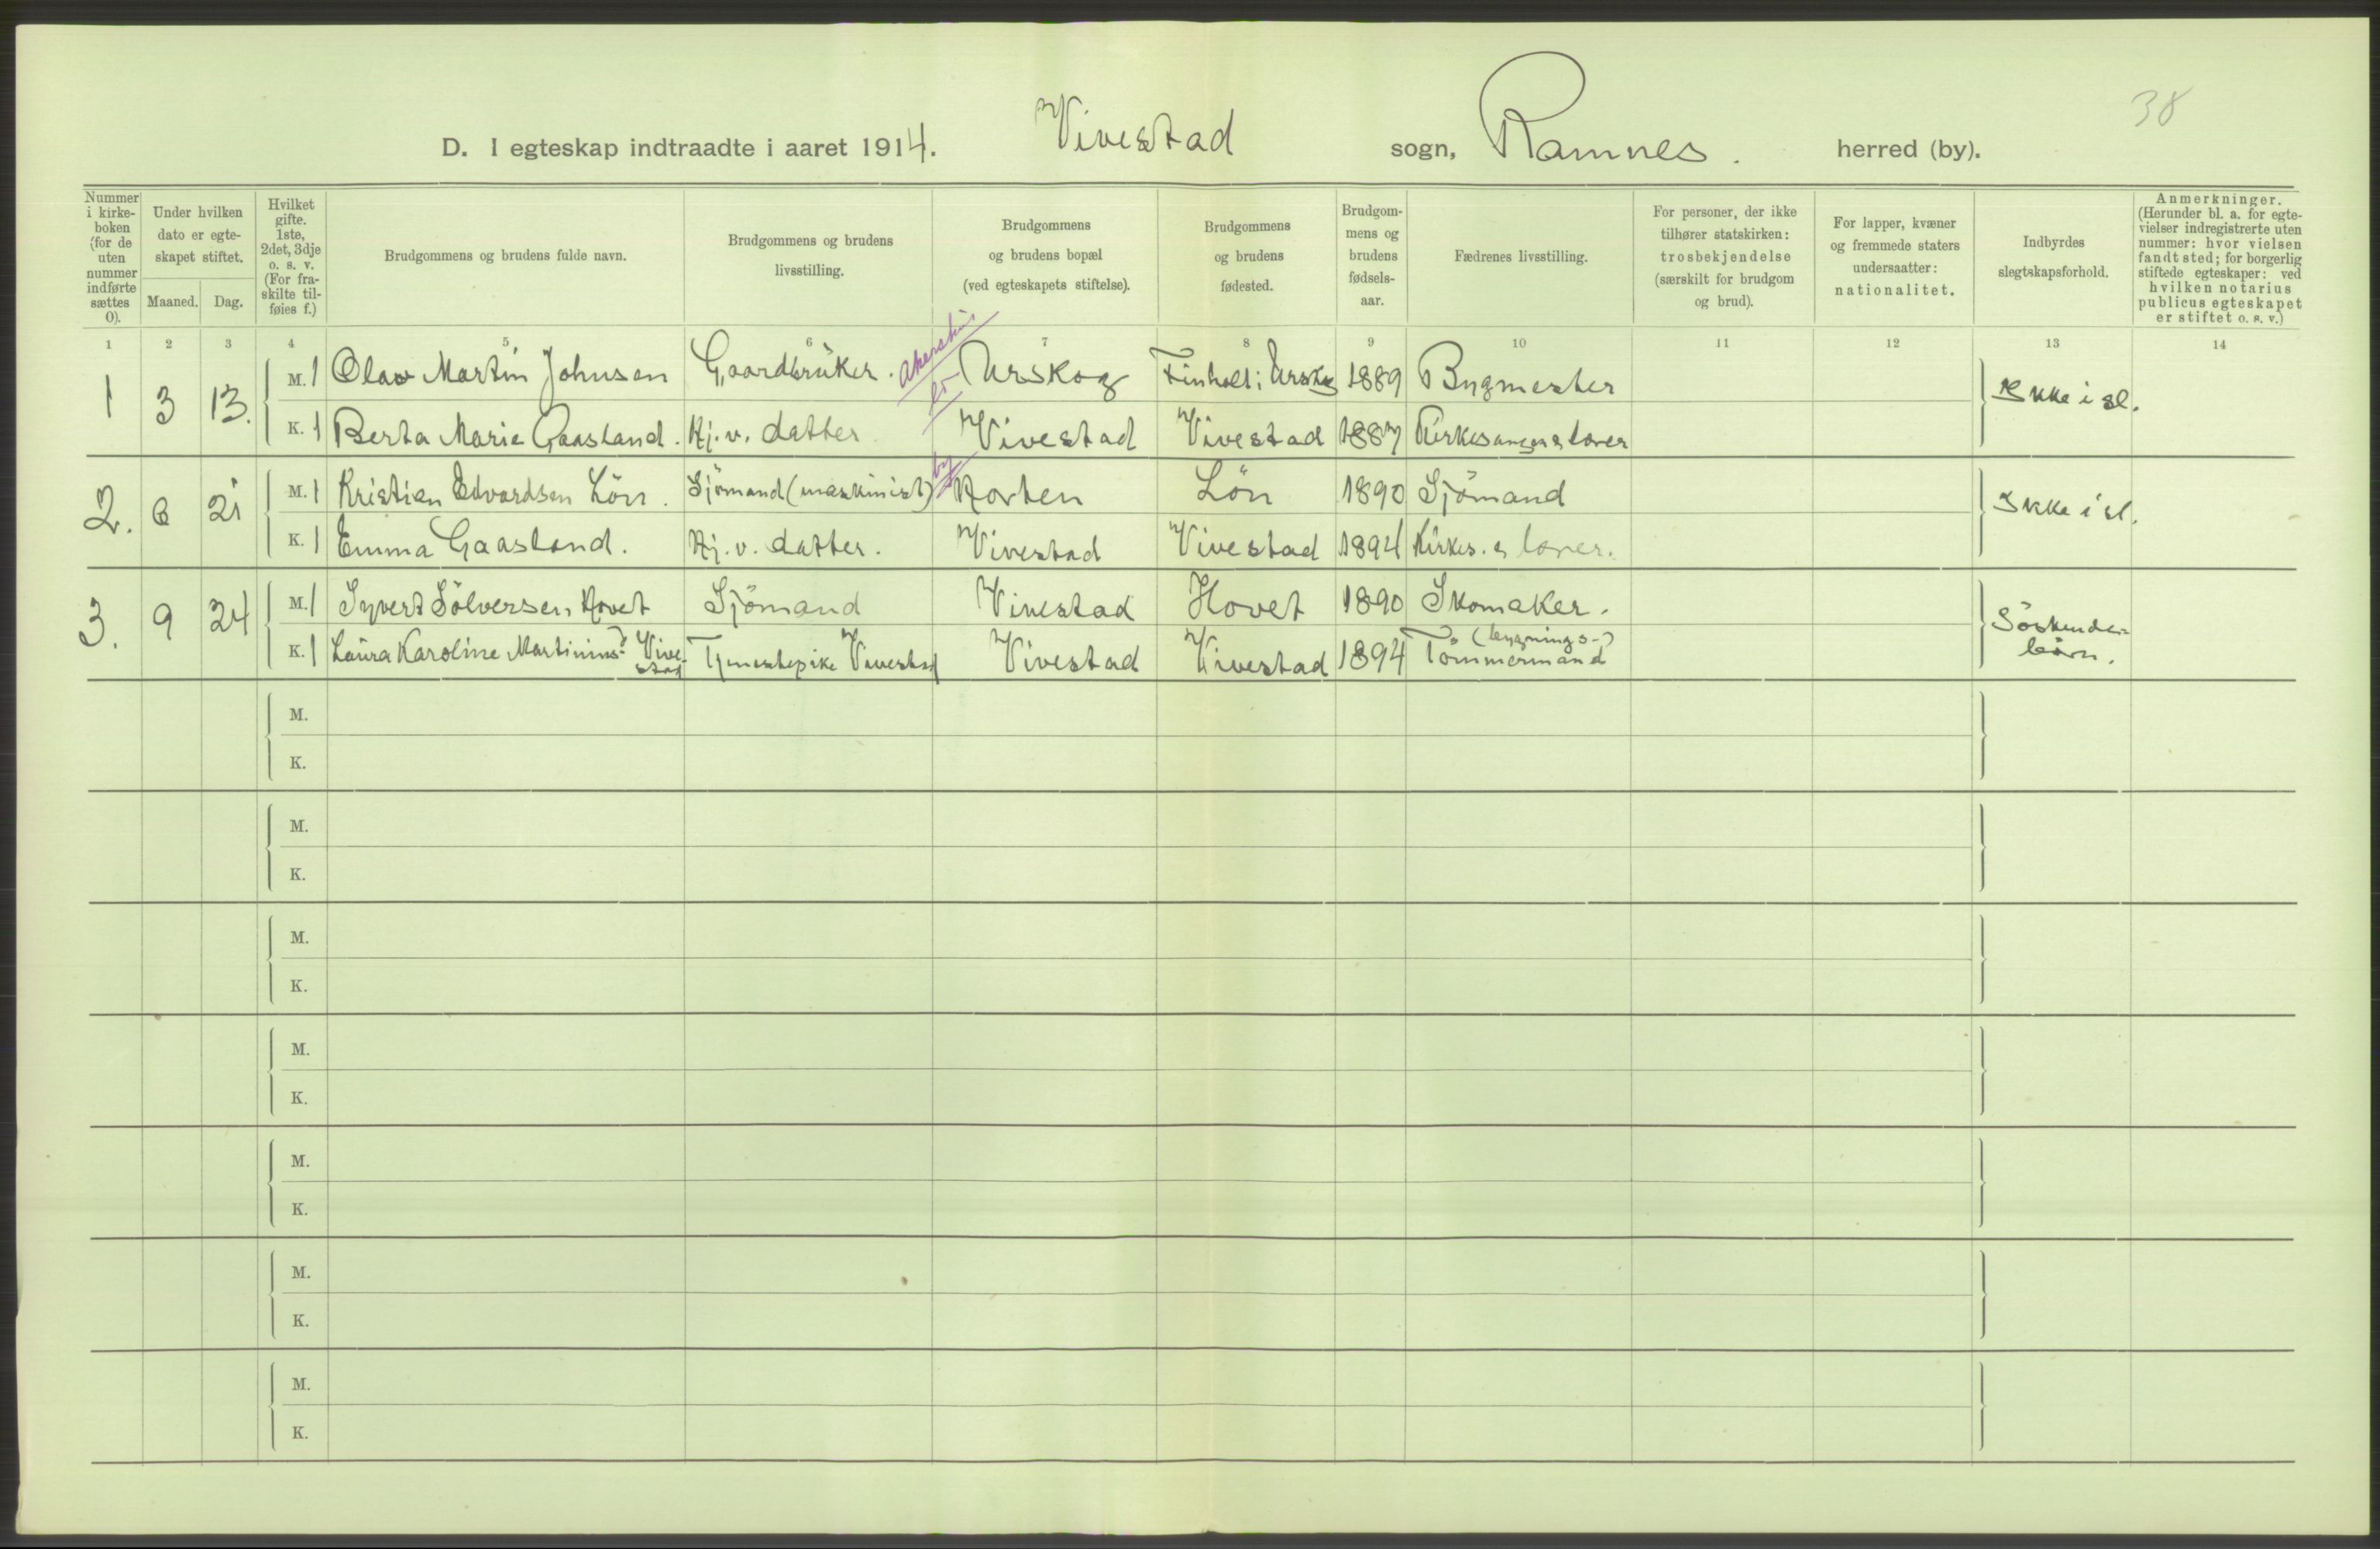 38
D. I egteskap indtraadte i aaret 1914. Vivestad sogn, Ramnes. herred (by).
Nummer i kirke-boken (for de uten nummer indførte sættes 0).
Under hvilken dato er egte-skapet stiftet.
Maaned. Dag.
Hvilket gifte. 1ste, 2det, 3dje o. s. v. (For fra-skilte til-føies f.)
Brudgommens og brudens fulde navn.
Brudgommens og brudens livsstilling.
Brudgommens og brudens bopæl (ved egteskapets stiftelse).
Brudgommens og brudens fødested.
Brudgom-mens og brudens fødsels-aar.
Fædrenes livsstilling.
For personer, der ikke tilhører statskirken: trosbekjendelse (særskilt for brudgom og brud).
For lapper, kvæner og fremmede staters undersaatter: nationalitet.
Indbyrdes slegtskapsforhold.
Anmerkninger. (Herunder bl. a. for egte-vielser indregistrerte uten nummer: hvor vielsen fandt sted; for borgerlig stiftede egteskaper: ved hvilken notarius publicus egteskapet er stiftet o. s. v.)
1 2 3 4 5 6 7 8 9 10 11 12 13 14
1 3 13. M. 1 Olav Martin Johnsen Gaardbrüker. Akershus Urskog Finholt i Ursk 1889 Bygmester Ikke i sl.
K. 1 Berta Marie Gaasland. Hj. v. datter Vivestad Vivestad 1887 Kirkesanger & lærer
2. 6 21 M. 1 Kristian Edvardsen Lön. Sjömand (maskinist) by Horten Lön 1890 Sjömand Ikke i sl.
K. 1 Emma Gaasland. Hj. v. datter. Vivestad Vivestad 1894 Kirkes. & lærer.
3. 9 24 M. 1 Syvert Sölversen Hovet Sjömand Vivestad Hovet 1890 Skomaker. Söskende-
börn.
(bygnings-)
K. 1 Laura Karoline Martinius? Vive-stad Tjenestepike Vivestad Vivestad Vivestad 1894 Tömmermand
M.
K.
M.
K.
M.
K.
M.
K.
M.
K.
M.
K.
M.
K.